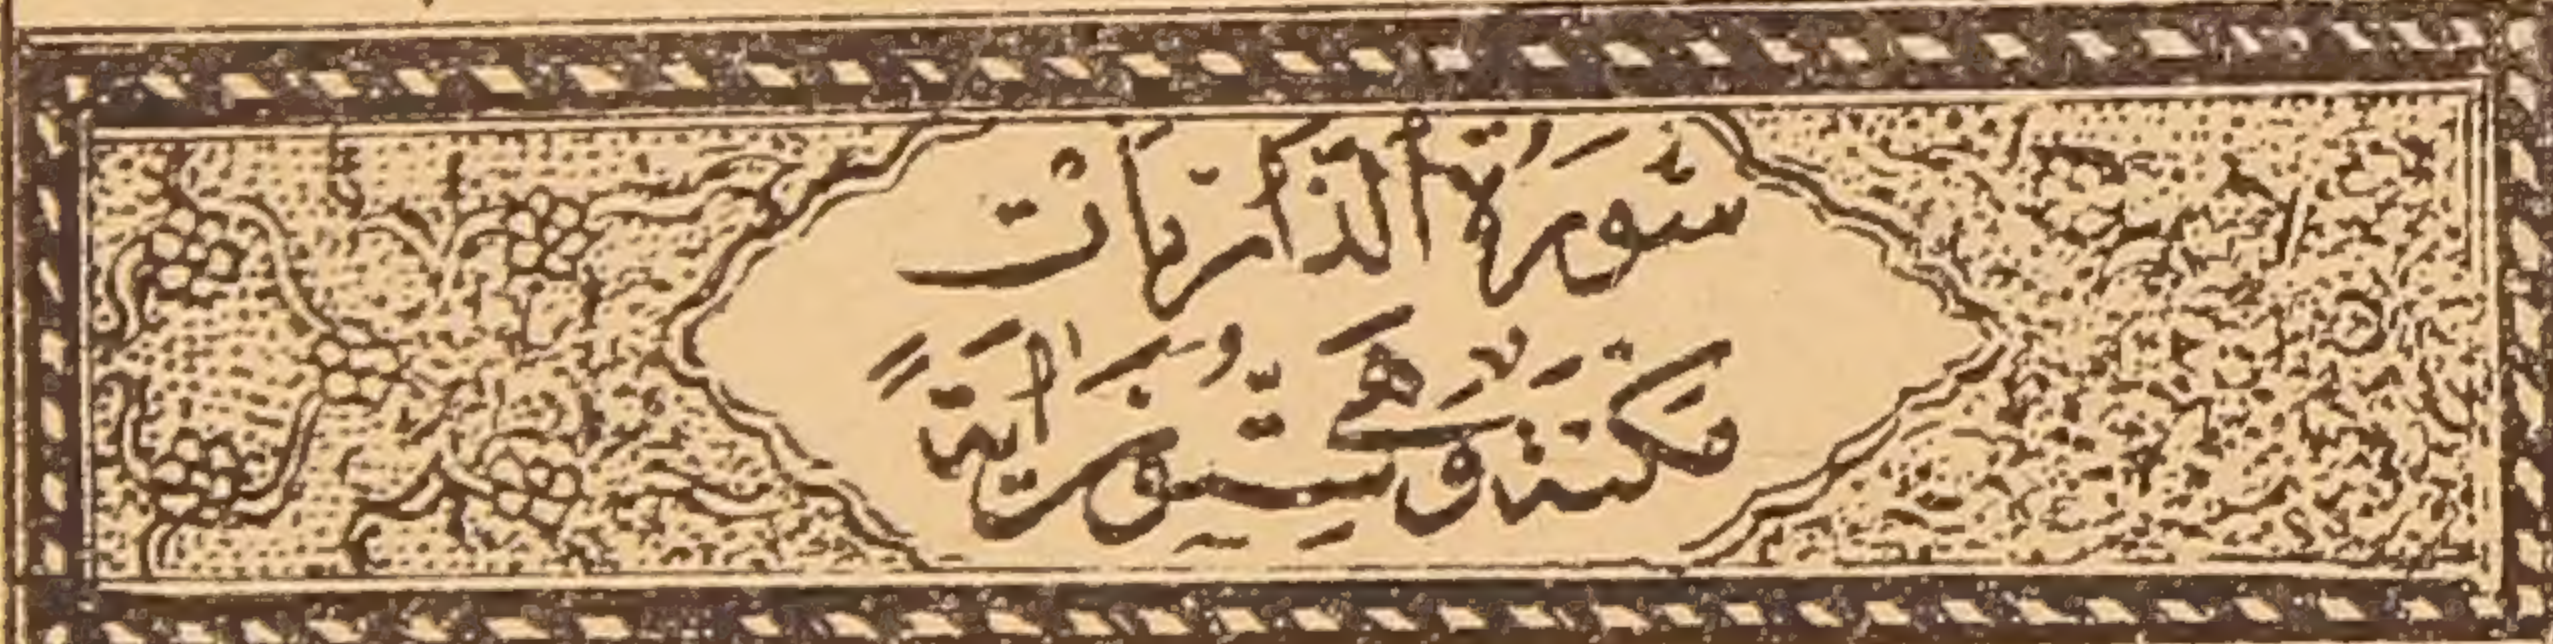 سُورَةُ الذَّارِيَاتِ
مَكِّيَّةٌ وَهِيَ سِتُّونَ اٰيَةً